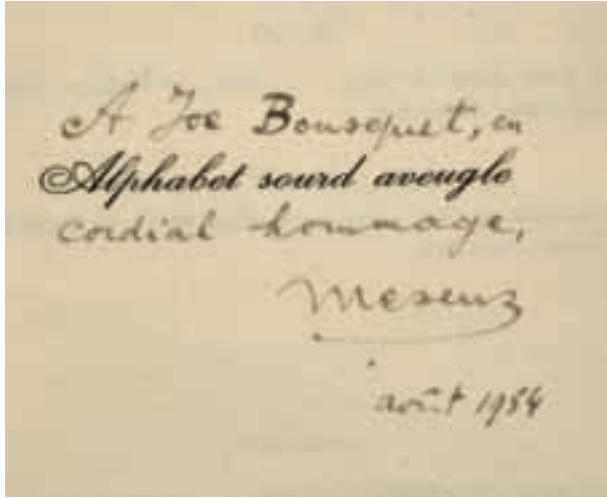 A Joe Bousquet, en
Alphabet sourd aveugle
cordial hommage,
Mesens
août 1934